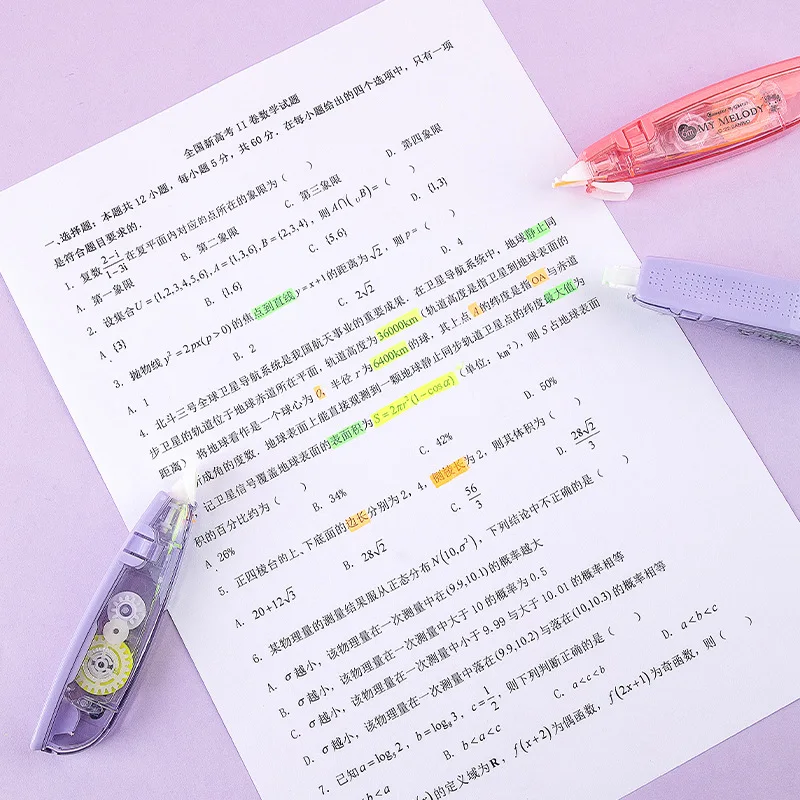 全国新高考 II 卷数学试题
一、选择题：本题共 12 小题，每小题 5 分，共 60 分．在每小题给出的四个选项中，只有一项
是符合题目要求的．
1．复数 (2-i)/(1-3i) 在复平面内对应的点所在的象限为（ ）
A．第一象限 B．第二象限 C．第三象限 D．第四象限
2．设集合U={1,2,3,4,5,6}, A={1,3,6}, B={2,3,4}，则 A∩(UB)=（ ）
A {3} B．{1,6} C．{5,6} D．{1,3}
3．抛物线 y²=2px(p>0)的焦点到直线y=x+1的距离为√2，则 p=（ ）
A．1 B．2 C．2√2 D．4
4．北斗三号全球卫星导航系统是我国航天事业的重要成果．在卫星导航系统中，地球静止同
步卫星的轨道位于地球赤道所在平面，轨道高度为36000km（轨道高度是指卫星到地球表面的
距离）将地球看作是一个球心为 半径 r 为6400km的球，其上点 A 的纬度是指OA与赤道
所成角的度数．地球表面上能直接观测到一颗地球静止同步轨道卫星点的纬度最大值为
记卫星信号覆盖地球表面的表面积为 S=2πr²(1-cosα)（单位：km²），则 S 占地球表面
积的百分比约为（ ）
A 26% B．34% C．42% D．50%
5．正四棱台的上、下底面的边长分别为 2，4，侧棱长为 2，则其体积为（ ）
A．20+12√3 B．28√2 C．56/3 D．28√2/3
6．某物理量的测量结果服从正态分布 N(10,σ²)，下列结论中不正确的是（ ）
A．σ 越小，该物理量在一次测量中在(9.9,10.1)的概率越大
B．σ 越小，该物理量在一次测量中大于 10 的概率为 0.5
C．σ 越小，该物理量在一次测量中小于 9.99 与大于 10.01 的概率相等
D．σ 越小，该物理量在一次测量中落在(9.9,10.2)与落在(10,10.3)的概率相等
7．已知a=log₅2，b=log₈3，c=1/2，则下列判断正确的是（ ）
b<a B．b<a<c C．a<c<b D．a<b<c
的定义域为R，f(x+2)为偶函数，f(2x+1)为奇函数，则（ ）
MY MELODY
6m